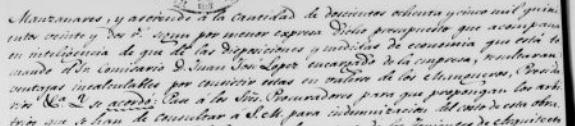 Manzanares, y asciende á la cantidad de doscientos ochenta y cinco mil quini
entos veinte y dos rs. segun por menor expresa dicho presupuesto que acompaña
en inteligencia de que de las disposiciones y medidas de economia que está to
mando el Sr. Comisario D. Juan José Lopez encargado de la empresa, resultaran
ventajas incalculables por consistir estas en
rios &a. Se acordó: Pase á los Sres. Procuradores para que propongan los arbi
trios que se han de consultar á S.M. para indemnizacion del costo de esta obra